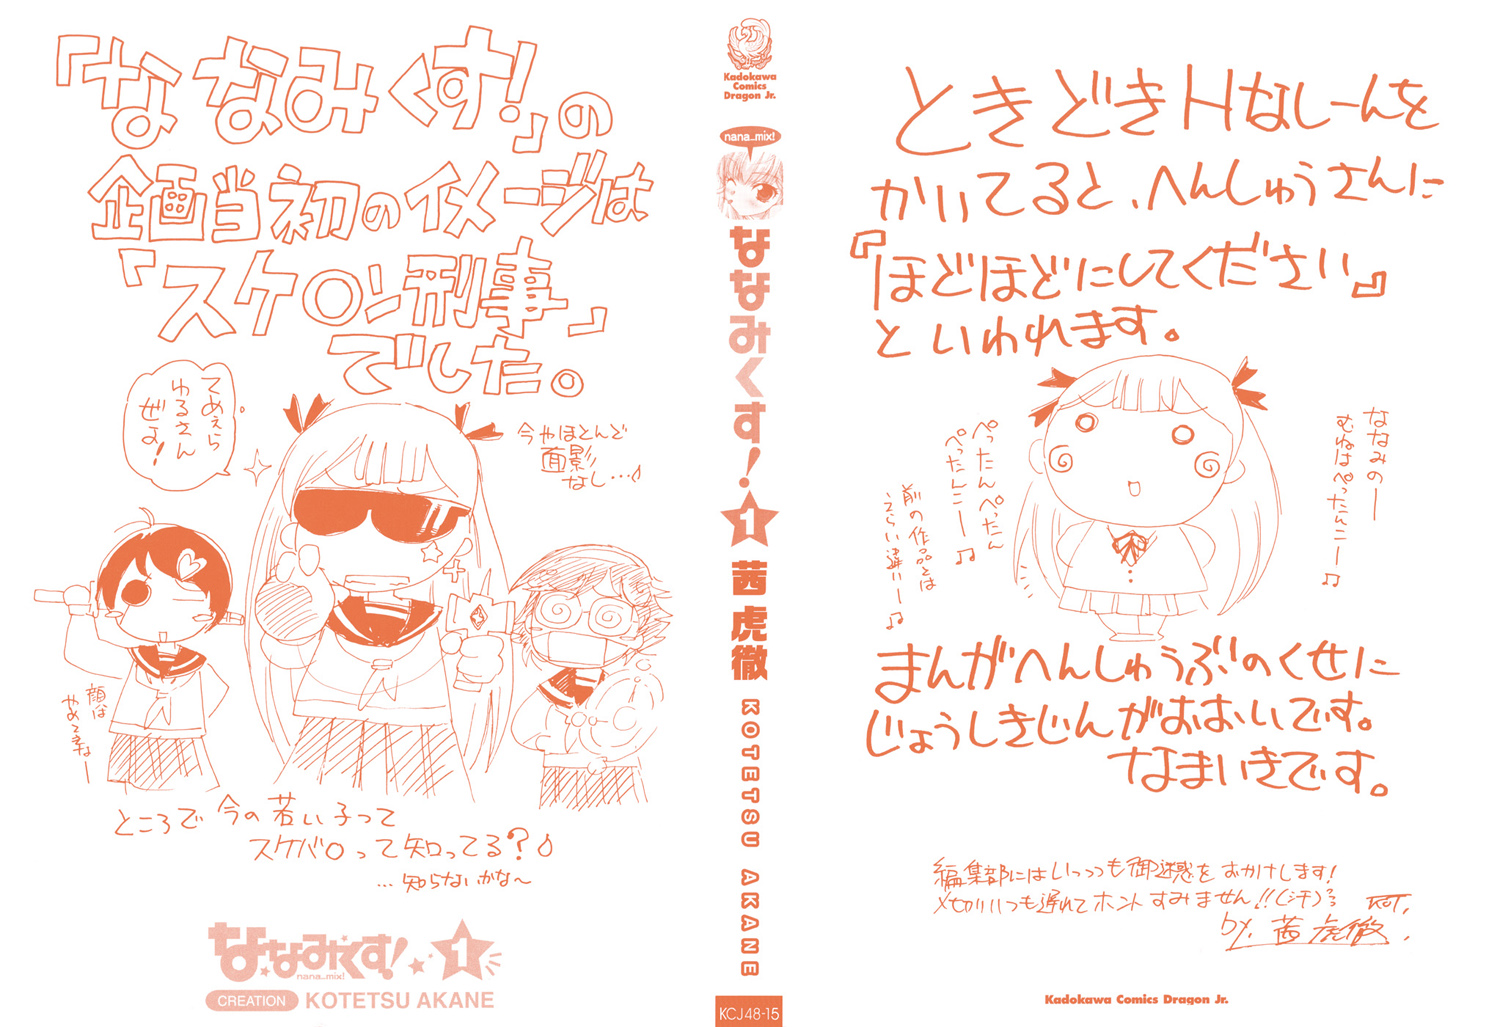 「ななみくす!」の
企画当初のイメージは
「スケ○ン刑事」
でした。
てめえら
ゆるさん
ぜよ!
今やほとんど
面影
なし…
顔は
やめてきなー
ところで今の若い子って
スケバ○って知ってる?
…知らないかな〜
ななみくす! 1
nana_mix!
CREATION KOTETSU AKANE
Kadokawa
Comics
Dragon Jr.
nana_mix!
ななみくす!
1
茜虎徹
KOTETSU AKANE
KCJ48-15
ときどきHなしーんを
かいてると、へんしゅうさんに
『ほどほどにしてください』
といわれます。
ななみのー
むねはぺったんこー♫
ぺったんぺったん
ぺったんこー♫
前の作品とは
えらい違いー♫
まんがへんしゅうぶのくせに
じょうしきじんがおおいです。
なまいきです。
編集部にはいっつも御迷惑をおかけします!
〆切りいつも遅れてホントすみません!!(汗)
KOT.
by. 茜虎徹.
Kadokawa Comics Dragon Jr.